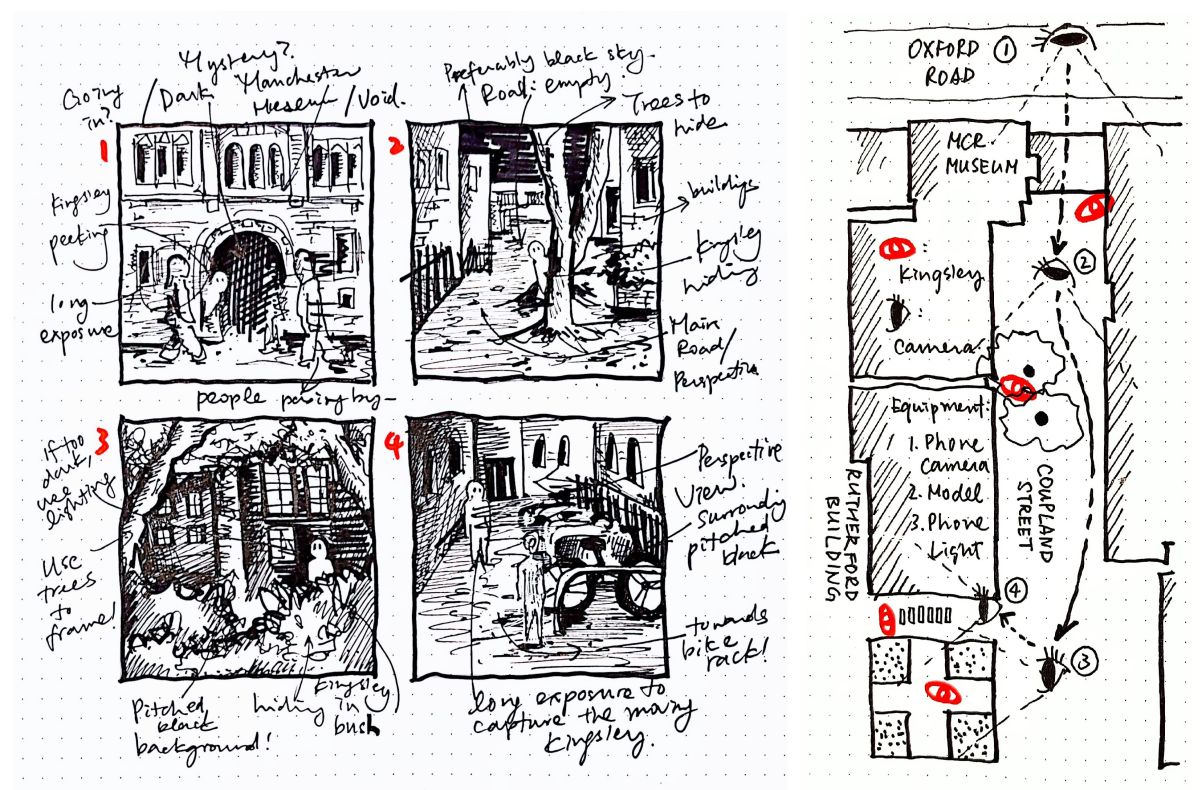 Going
in?
Mystery?
/Dark
Manchester
Museum
/Void.
1
Kingsley
peeking
long
exposure
people passing by
Preferably black sky
Road: empty
Trees to
hide
2
buildings
Kingsley
hiding
Main
Road/
Perspective
3
If too
dark,
use
lighting
Use
trees
to
frame!
Pitched
black
background!
hiding
Kingsley
in
bush
4
Perspective
View.
Surrounding
pitched
black
towards
bike
rack!
long exposure to
capture the moving
Kingsley.
OXFORD
ROAD
1
MCR
MUSEUM
2
:
Kingsley
:
Camera
Equipment:
1. Phone
Camera
2. Model
3. Phone
Light
COUPLAND
STREET
RUTHERFORD
BUILDING
4
3